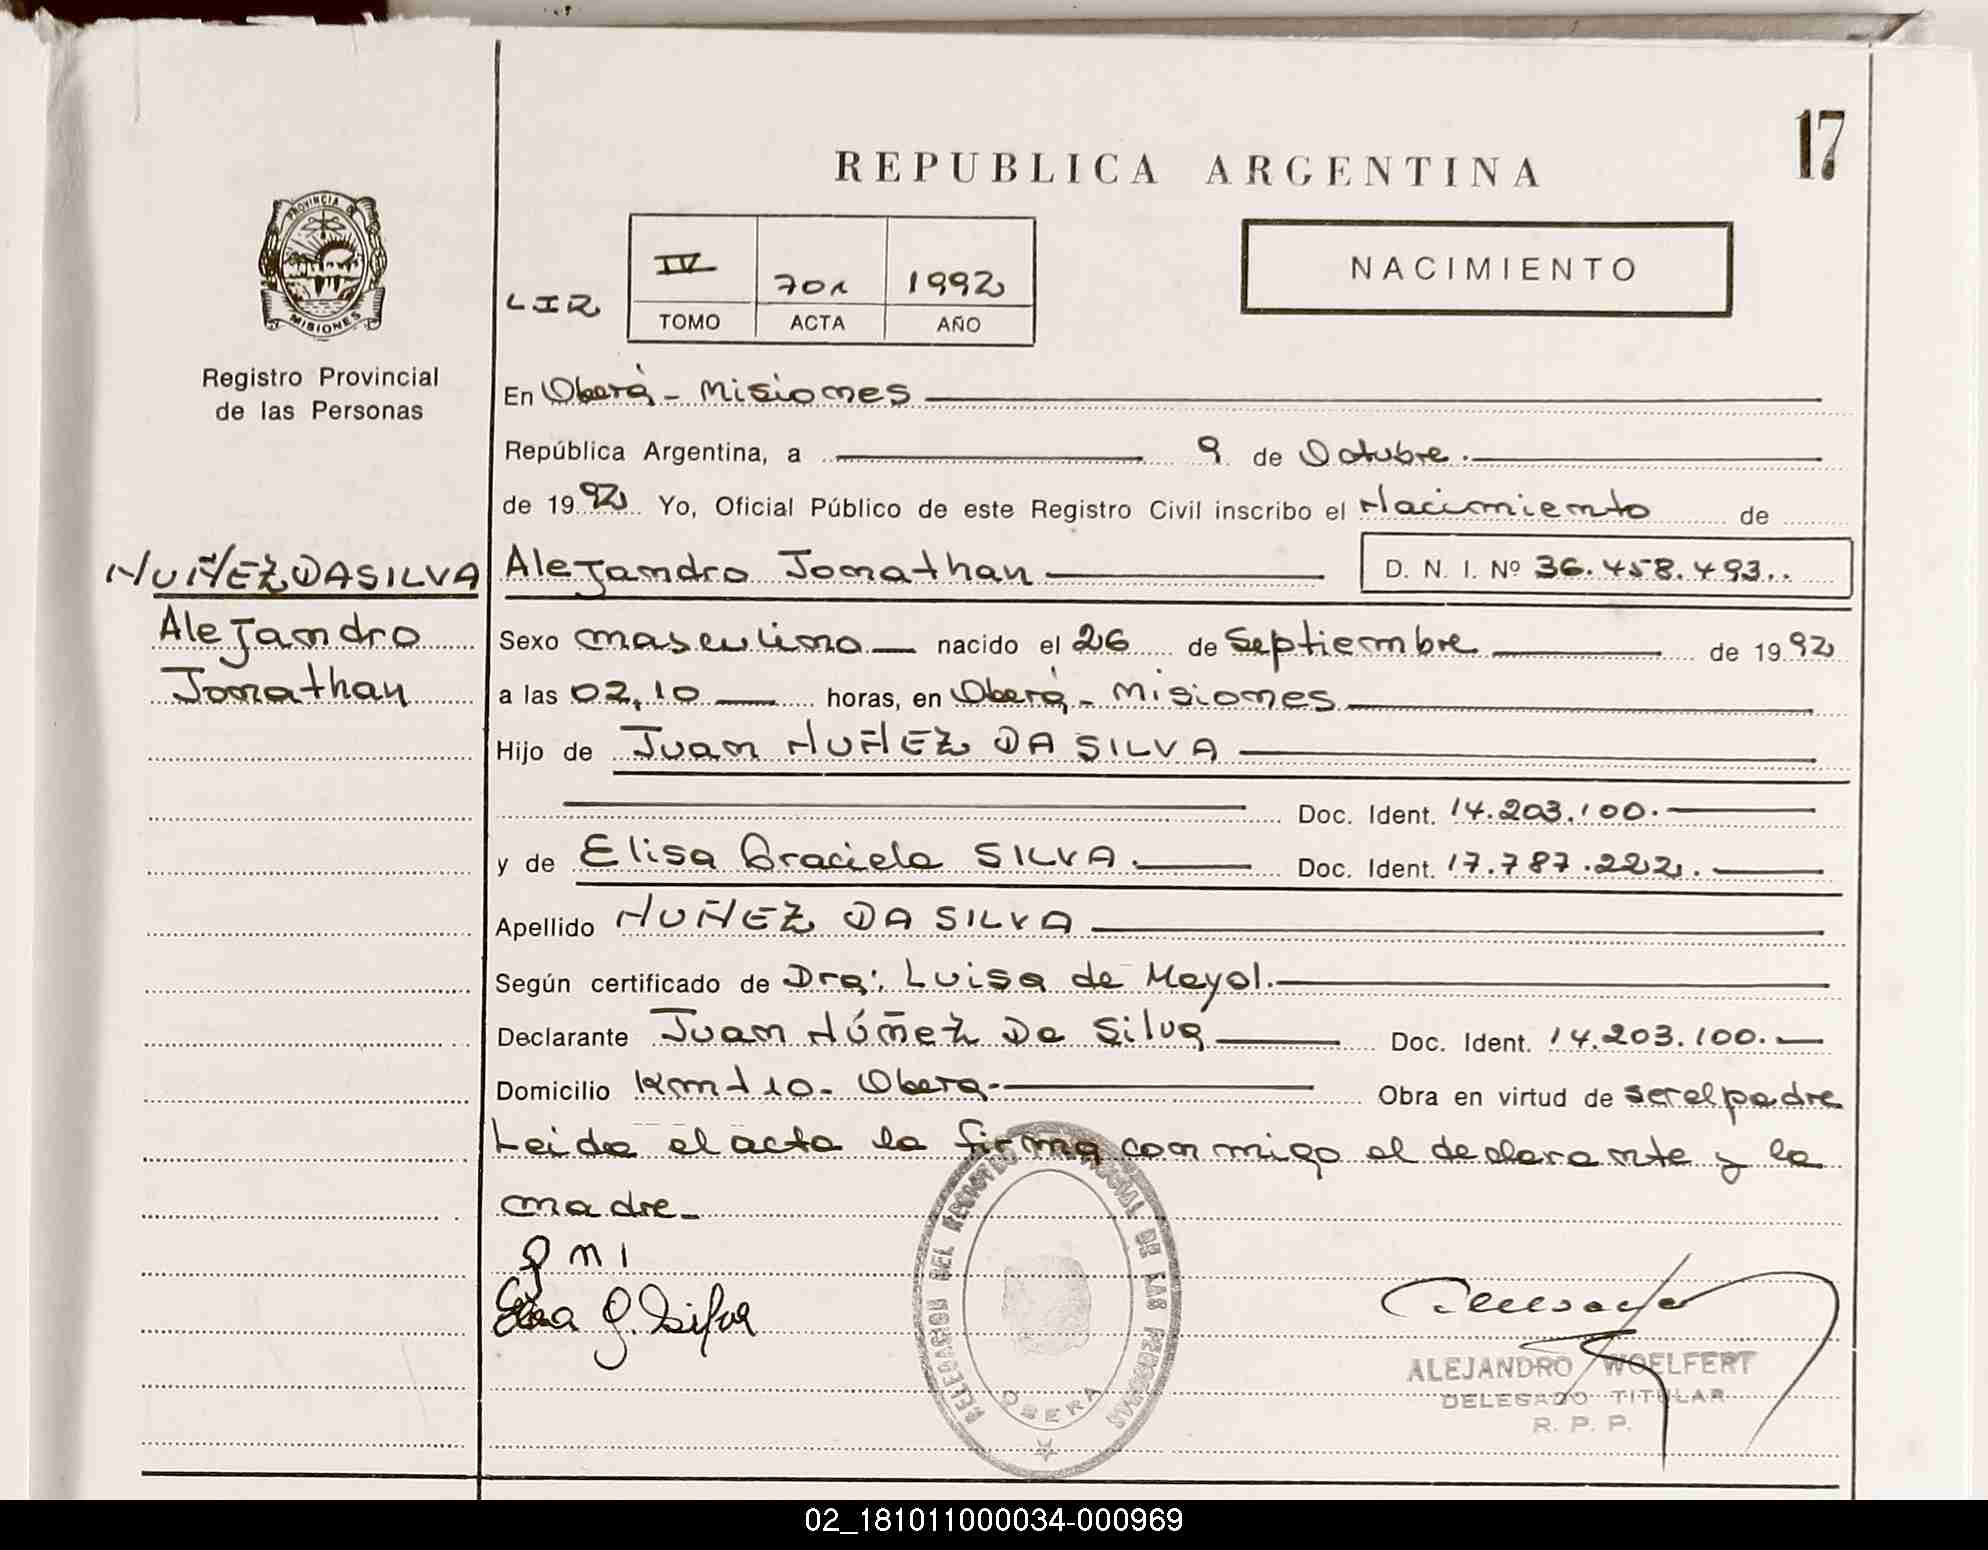 17
REPUBLICA ARGENTINA
PROVINCIA DE
MISIONES
Registro Provincial
de las Personas
NACIMIENTO
IV 701 1992
TOMO ACTA AÑO
En Oberá - Misiones
República Argentina, a 9 de Octubre.
de 1992 Yo, Oficial Público de este Registro Civil inscribo el Nacimiento de
NUÑEZ DA SILVA
Alejandro
Jonathan
Alejandro Jonathan D. N. I. Nº 36.458.493..
Sexo masculino nacido el 26 de Septiembre de 1992
a las 02,10 horas, en Oberá - Misiones
Hijo de Juan NUÑEZ DA SILVA
Doc. Ident. 14.203.100.
y de Elisa Graciela SILVA. Doc. Ident. 17.787.222.
Apellido NUÑEZ DA SILVA
Según certificado de Dra: Luisa de Mayol.
Declarante Juan Núñez Da Silva Doc. Ident. 14.203.100.
Domicilio Km 10- Oberá- Obra en virtud de ser el padre
Leida el acta la firma conmigo el declarante y la
madre_
Elisa G. Silva
DELEGACION DEL REGISTRO PROVINCIAL DE LAS PERSONAS
OBERA
ALEJANDRO WOELFERT
DELEGADO TITULAR
R. P. P.
02_181011000034-000969